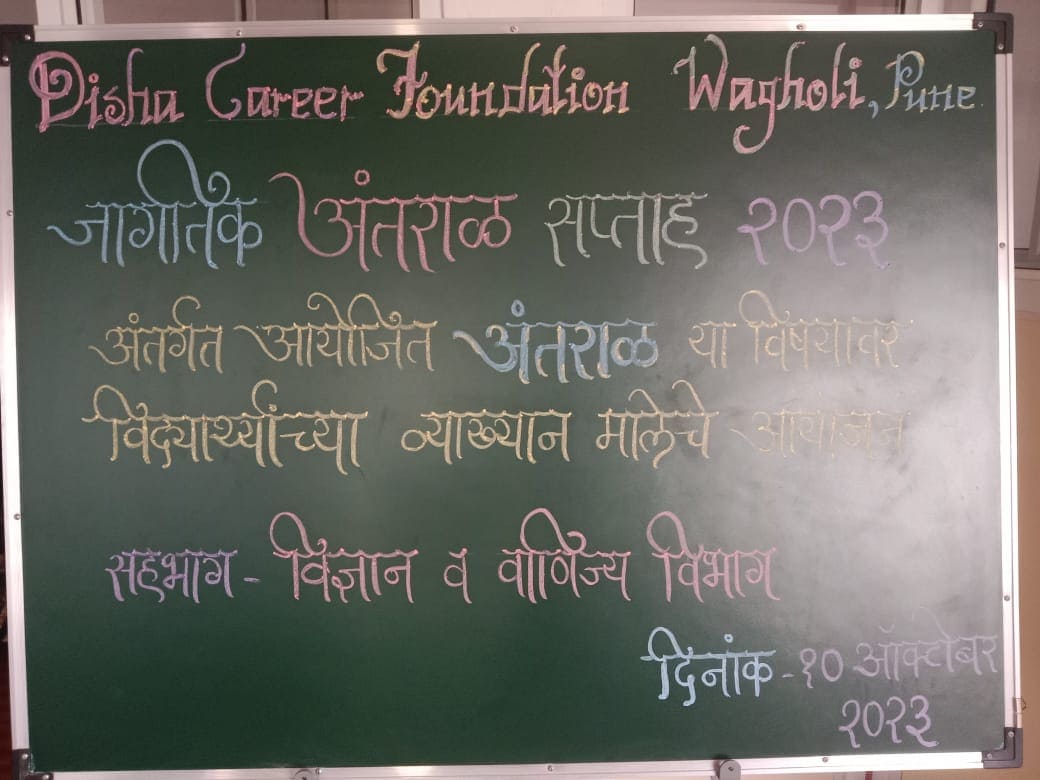 Disha Career Foundation Wagholi, Pune.
जागतिक अंतराळ सप्ताह २०२३
अंतर्गत आयोजित अंतराळ या विषयावर
विद्यार्थ्यांच्या व्याख्यान मालेचे आयोजन
सहभाग - विज्ञान व वाणिज्य विभाग
दिनांक - १० ऑक्टोबर
२०२३